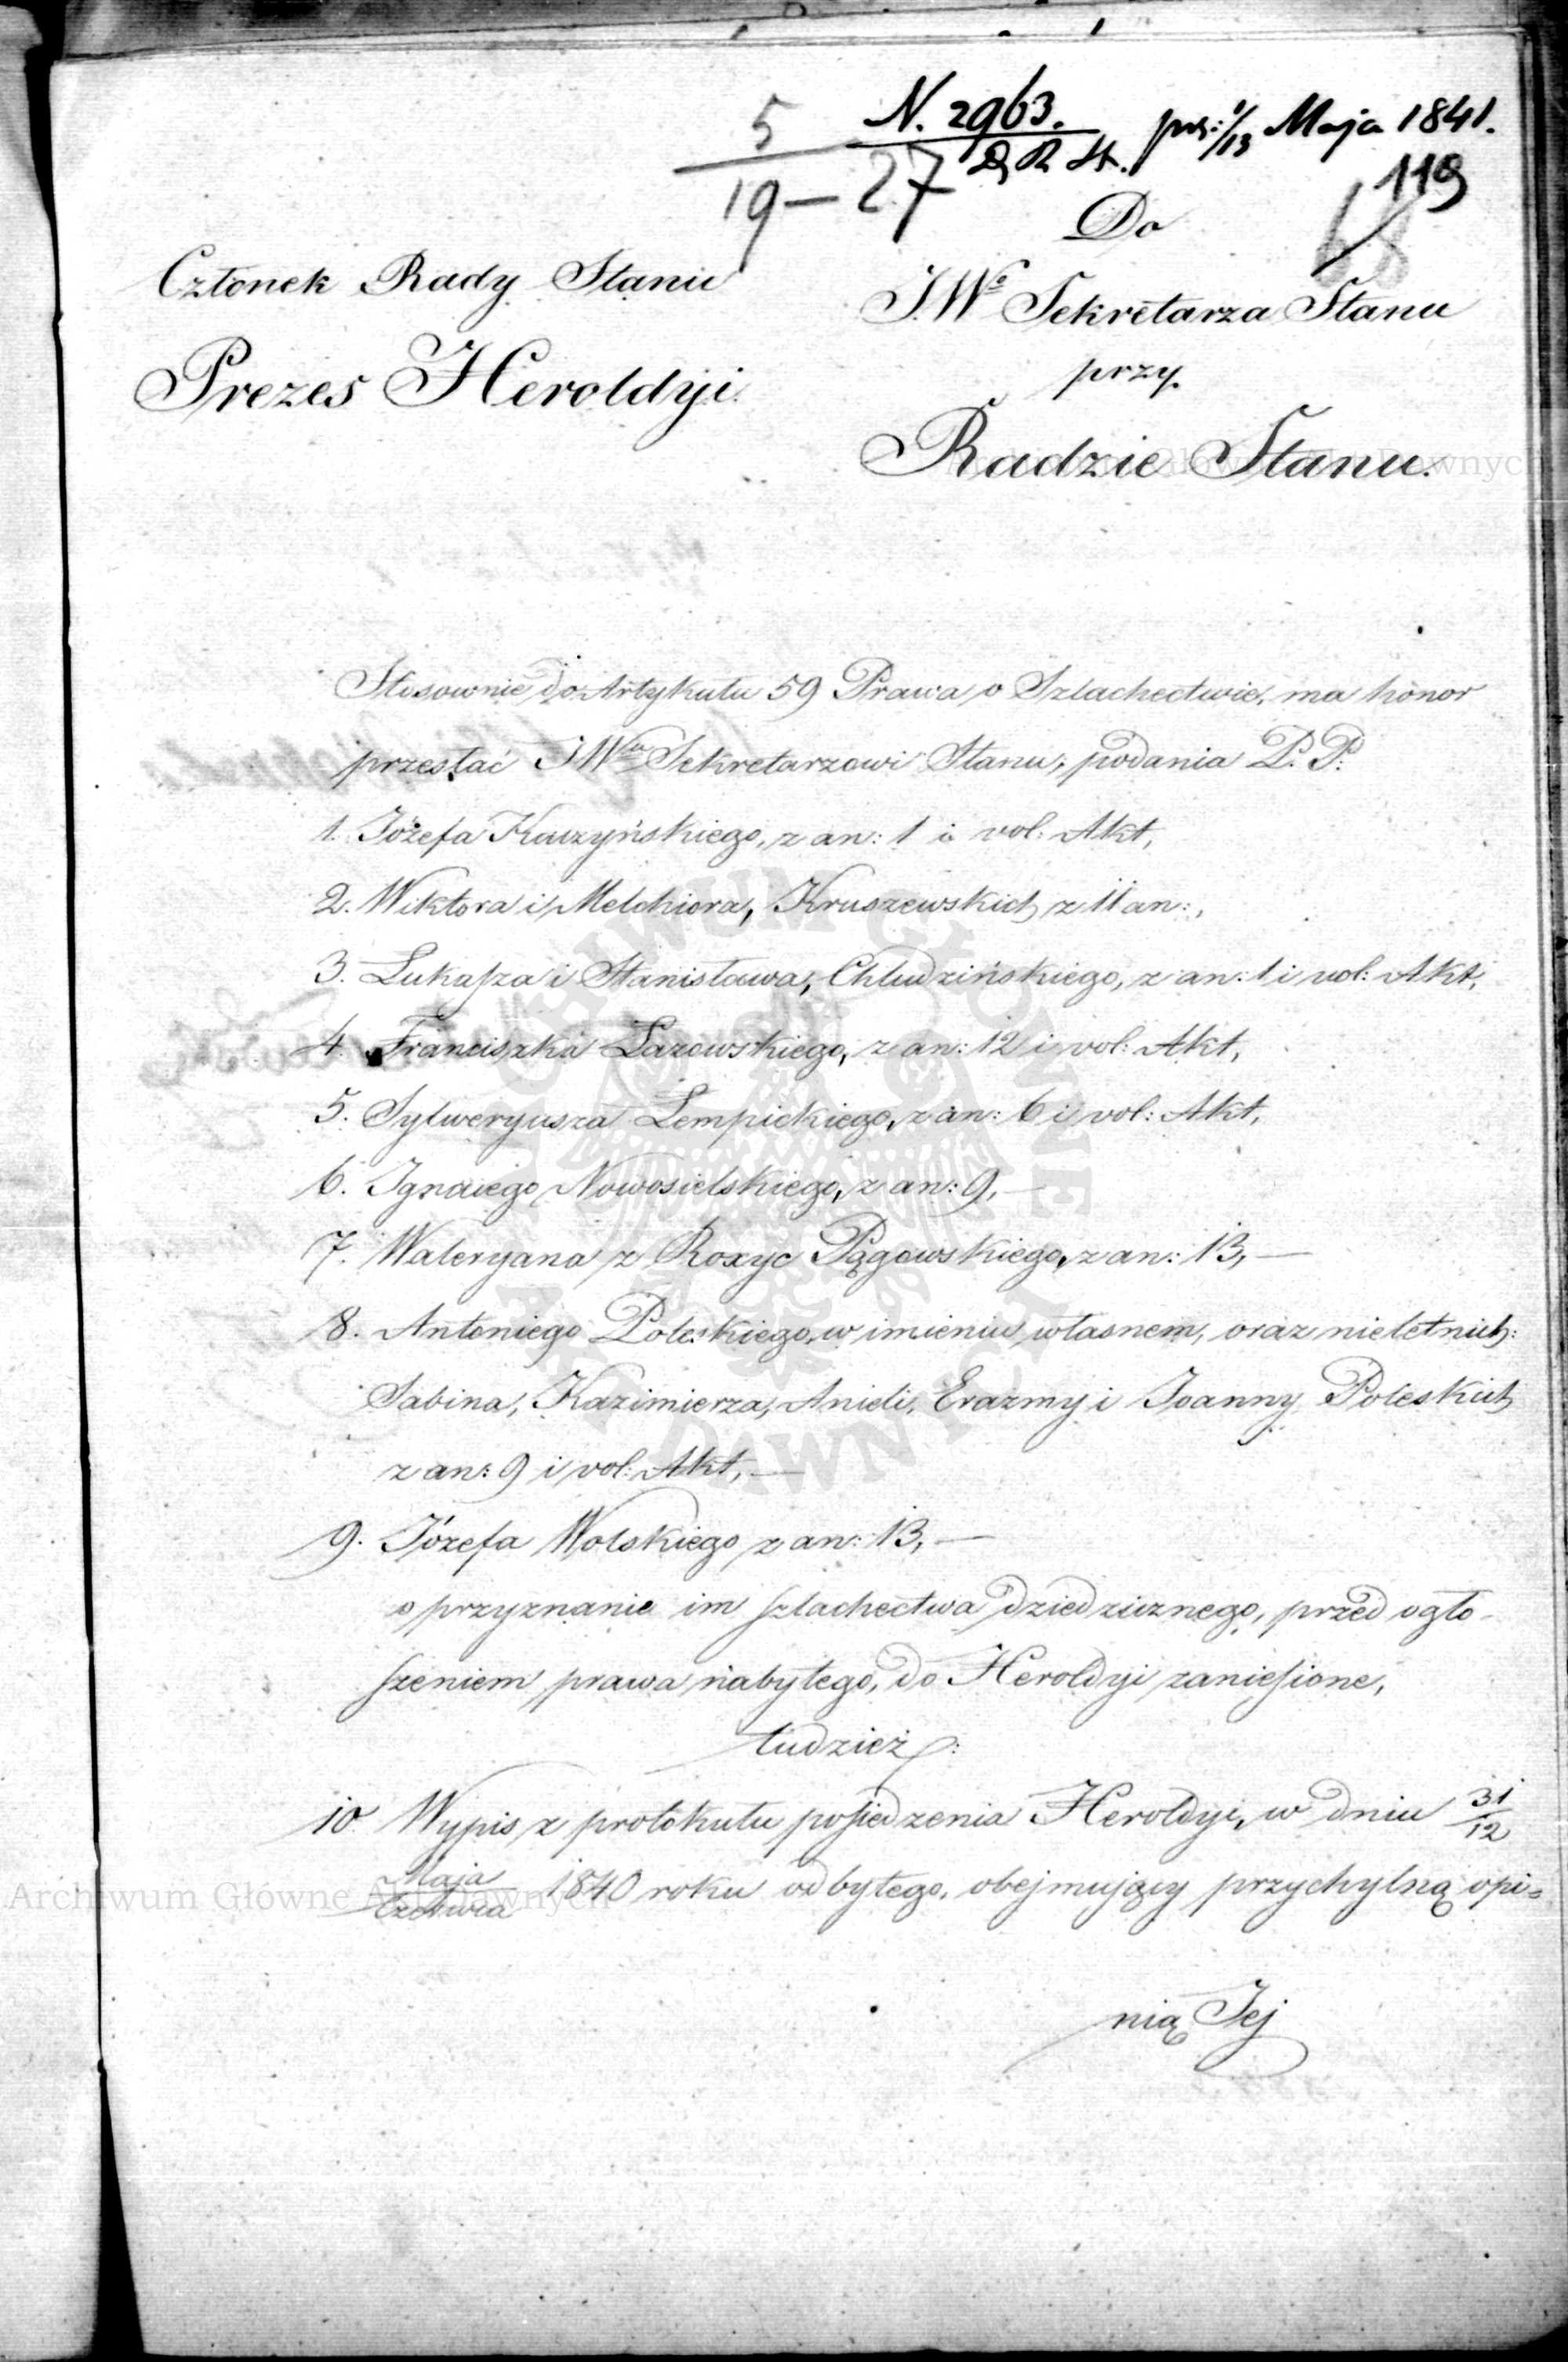 N. 2963. prz: 1/13 Maja 1841.
D. R. St.
5
19 – 27
119
68
Członek Rady Stanu
Prezes Heroldyi.
Do
JWo Sekretarza Stanu
przy
Radzie Stanu.
Stosownie do Artykułu 59 Prawa o Szlachectwie, ma honor
przesłać JWmu Sekretarzowi Stanu, podania P. P.
1. Józefa Kuczyńskiego, z an: 1 i vol: Akt,
2. Wiktora i Melchiora, Kruszewskich z 11 an:,
3. Łukasza i Stanisława, Chludzińskiego, z an: 1 i vol: Akt,
4. Franciszka Łazowskiego, z an: 12 i vol: Akt,
5. Sylweryusza Łempickiego, z an: 6 i vol: Akt,
6. Ignacego Nowosielskiego, z an: 9, —
7. Waleryana z Roxyc Pągowskiego, z an: 13, —
8. Antoniego Poleskiego, w imieniu własnem, oraz nieletnich:
Sabina, Kazimierza, Anieli, Erazmy i Joanny Poleskich
z an: 9 i vol: Akt, —
9. Józefa Wolskiego z an: 13, —
o przyznanie im szlachectwa dziedzicznego, przed ogło-
szeniem prawa nabytego, do Heroldyi zaniesione,
tudzież:
10 Wypis z protokułu posiedzenia Heroldyi, w dniu 31/12
Maja/Czerwca 1840 roku odbytego, obejmujący przychylną opi=
nią Jej
Archiwum Główne Akt Dawnych
ARCHIWUM GŁÓWNE AKT DAWNYCH